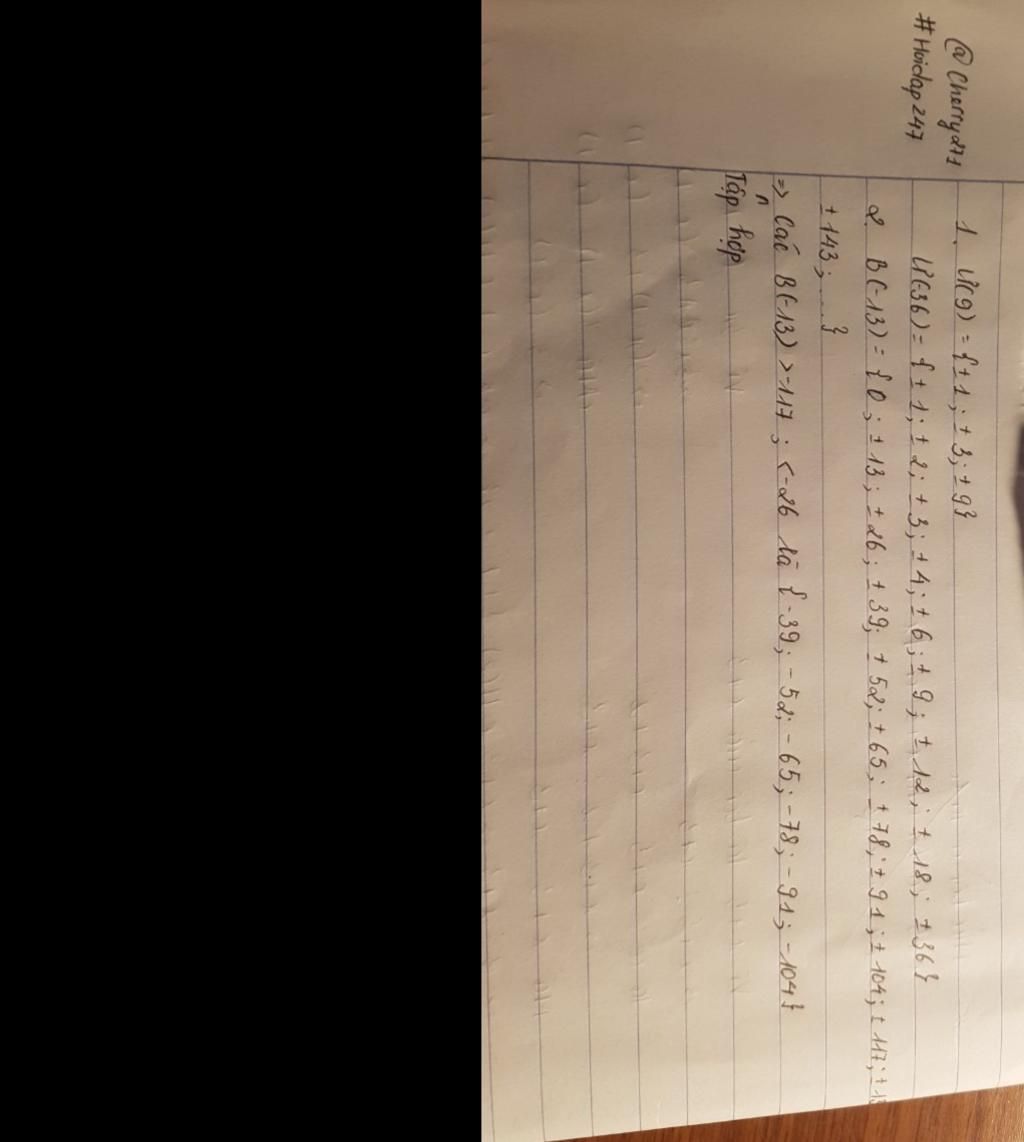 @Cherry271
#Hoidap247
1. Ư(9) = {±1; ±3; ±9}
Ư(-36) = {±1; ±2; ±3; ±4; ±6; ±9; ±12; ±18; ±36}
2. B(-13) = {0; ±13; ±26; ±39; ±52; ±65; ±78; ±91; ±104; ±117;
±143; ....}
=> Các B(-13) >-117; <-26 là {-39; -52; -65; -78; -91; -104}
Tập hợp